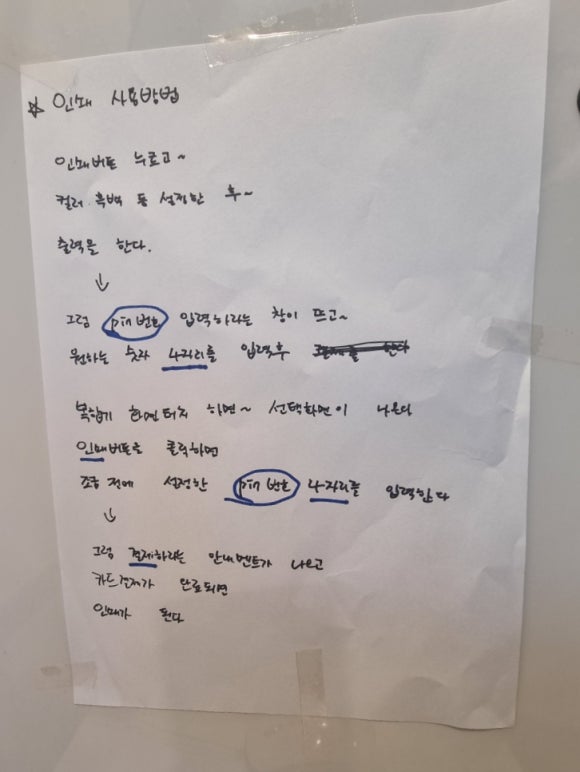 ☆ 인쇄 사용방법
인쇄버튼 누르고~
컬러. 흑백 등 설정한 후~
출력을 한다.
↓
그럼 pin 번호 입력하라는 창이 뜨고~
원하는 숫자 4자리를 입력후
복합기 화면터치 하면~ 선택화면이 나온다
인쇄버튼을 클릭하면
조금 전에 설정한 pin 번호 4자리를 입력한다
↓
그럼 결제하라는 안내멘트가 나오고
카드결제가 완료되면
인쇄가 된다